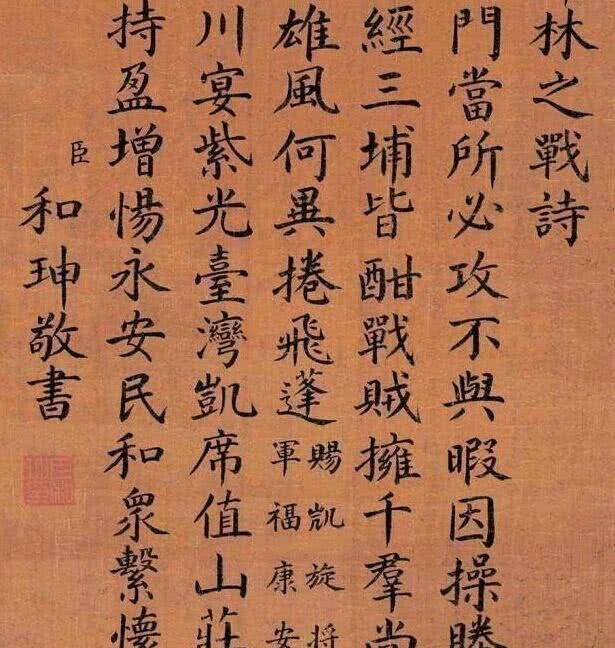 林之戰詩
門當所必攻不與暇因操勝
經三埔皆酣戰賊擁千羣尚
雄風何異捲飛蓬
賜凱旋将
軍福康安
川宴紫光臺灣凱席值山莊
持盈增惕永安民和眾繫懷
臣和珅敬書